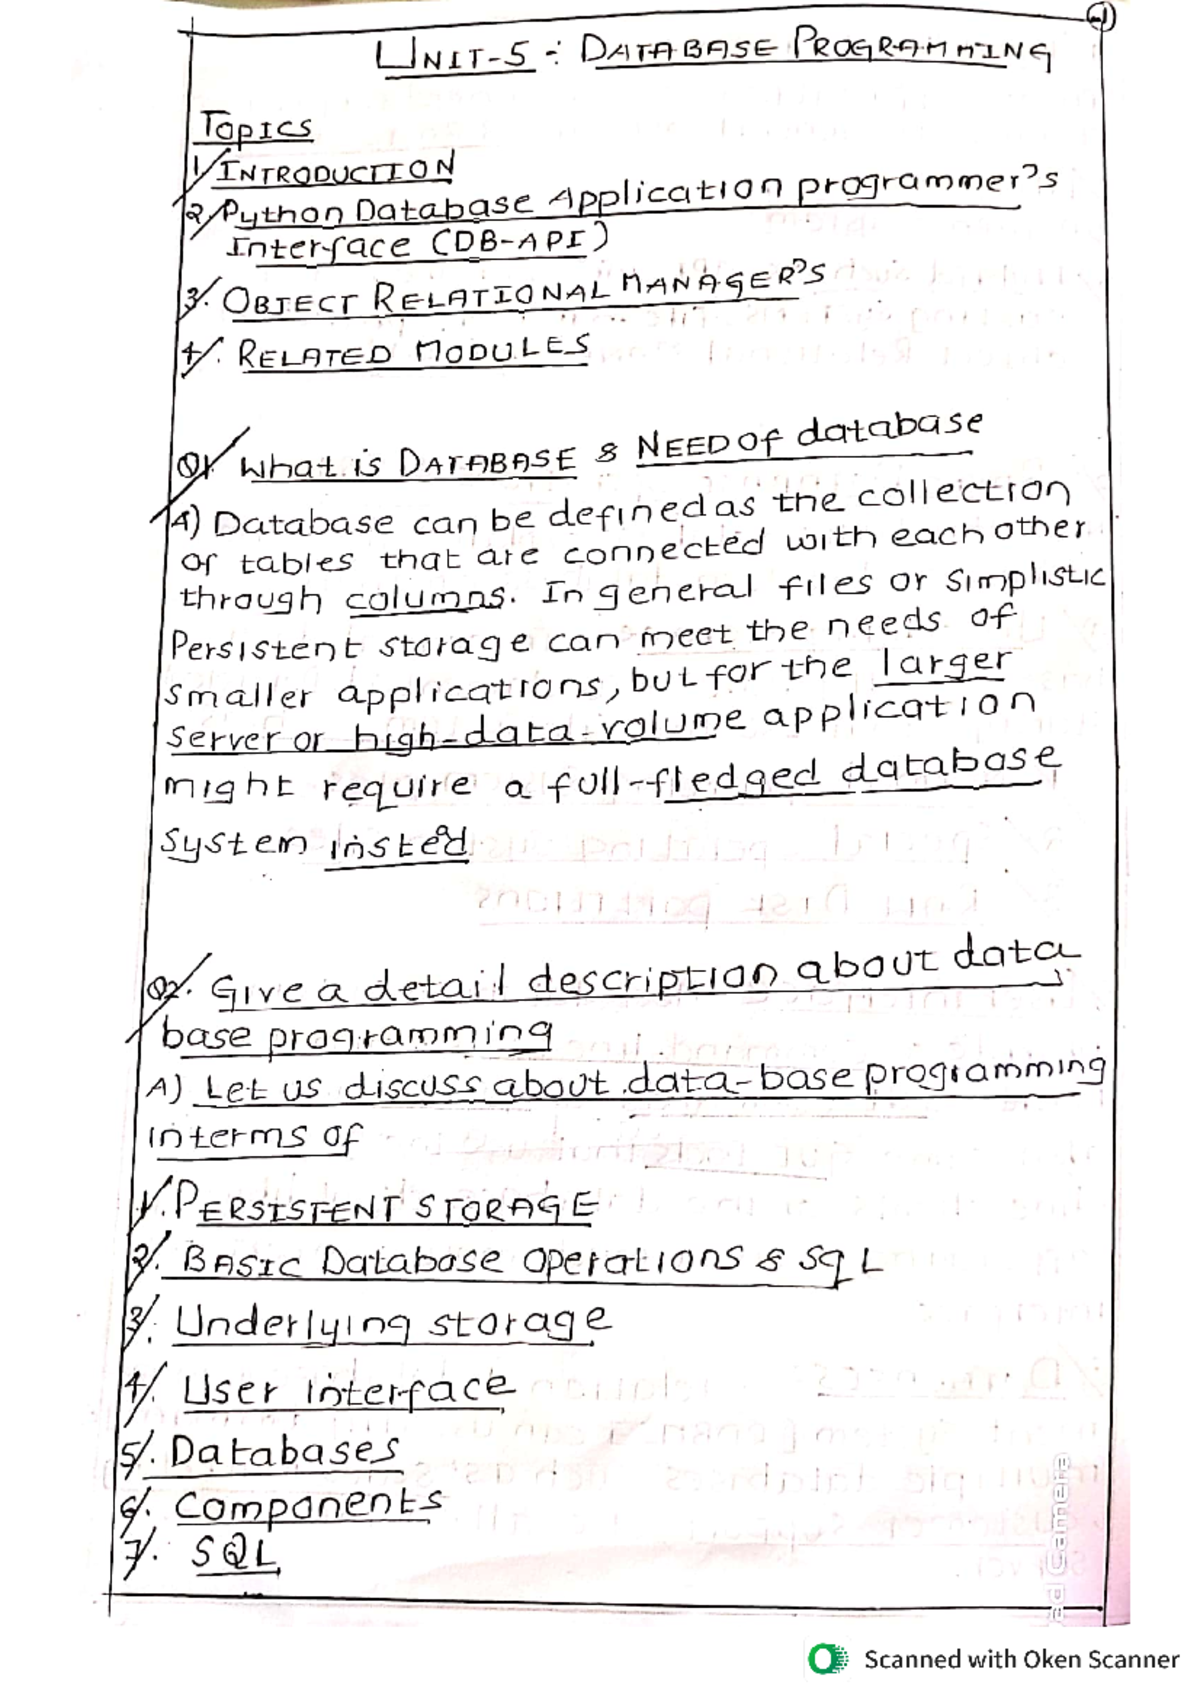 1
UNIT-5 :- DATABASE PROGRAMMING
Topics
1. INTRODUCTION
2. Python Database Application programmer's
Interface (DB-API)
3. OBJECT RELATIONAL MANAGER'S
4. RELATED MODULES
Q1. What is DATABASE & NEED Of database
A) Database can be defined as the collection
of tables that are connected with each other
through columns. In general files or simplistic
Persistent storage can meet the needs of
smaller applications, but for the larger
server or high-data-volume application
might require a full-fledged database
system instead
Q2. Give a detail description about data
base programming
A) Let us discuss about data-base programming
interms of
1. PERSISTENT STORAGE
2. BASIC Database operations & SQL
3. Underlying storage
4. User interface
5. Databases
6. Components
7. SQL
Scanned with Oken Scanner